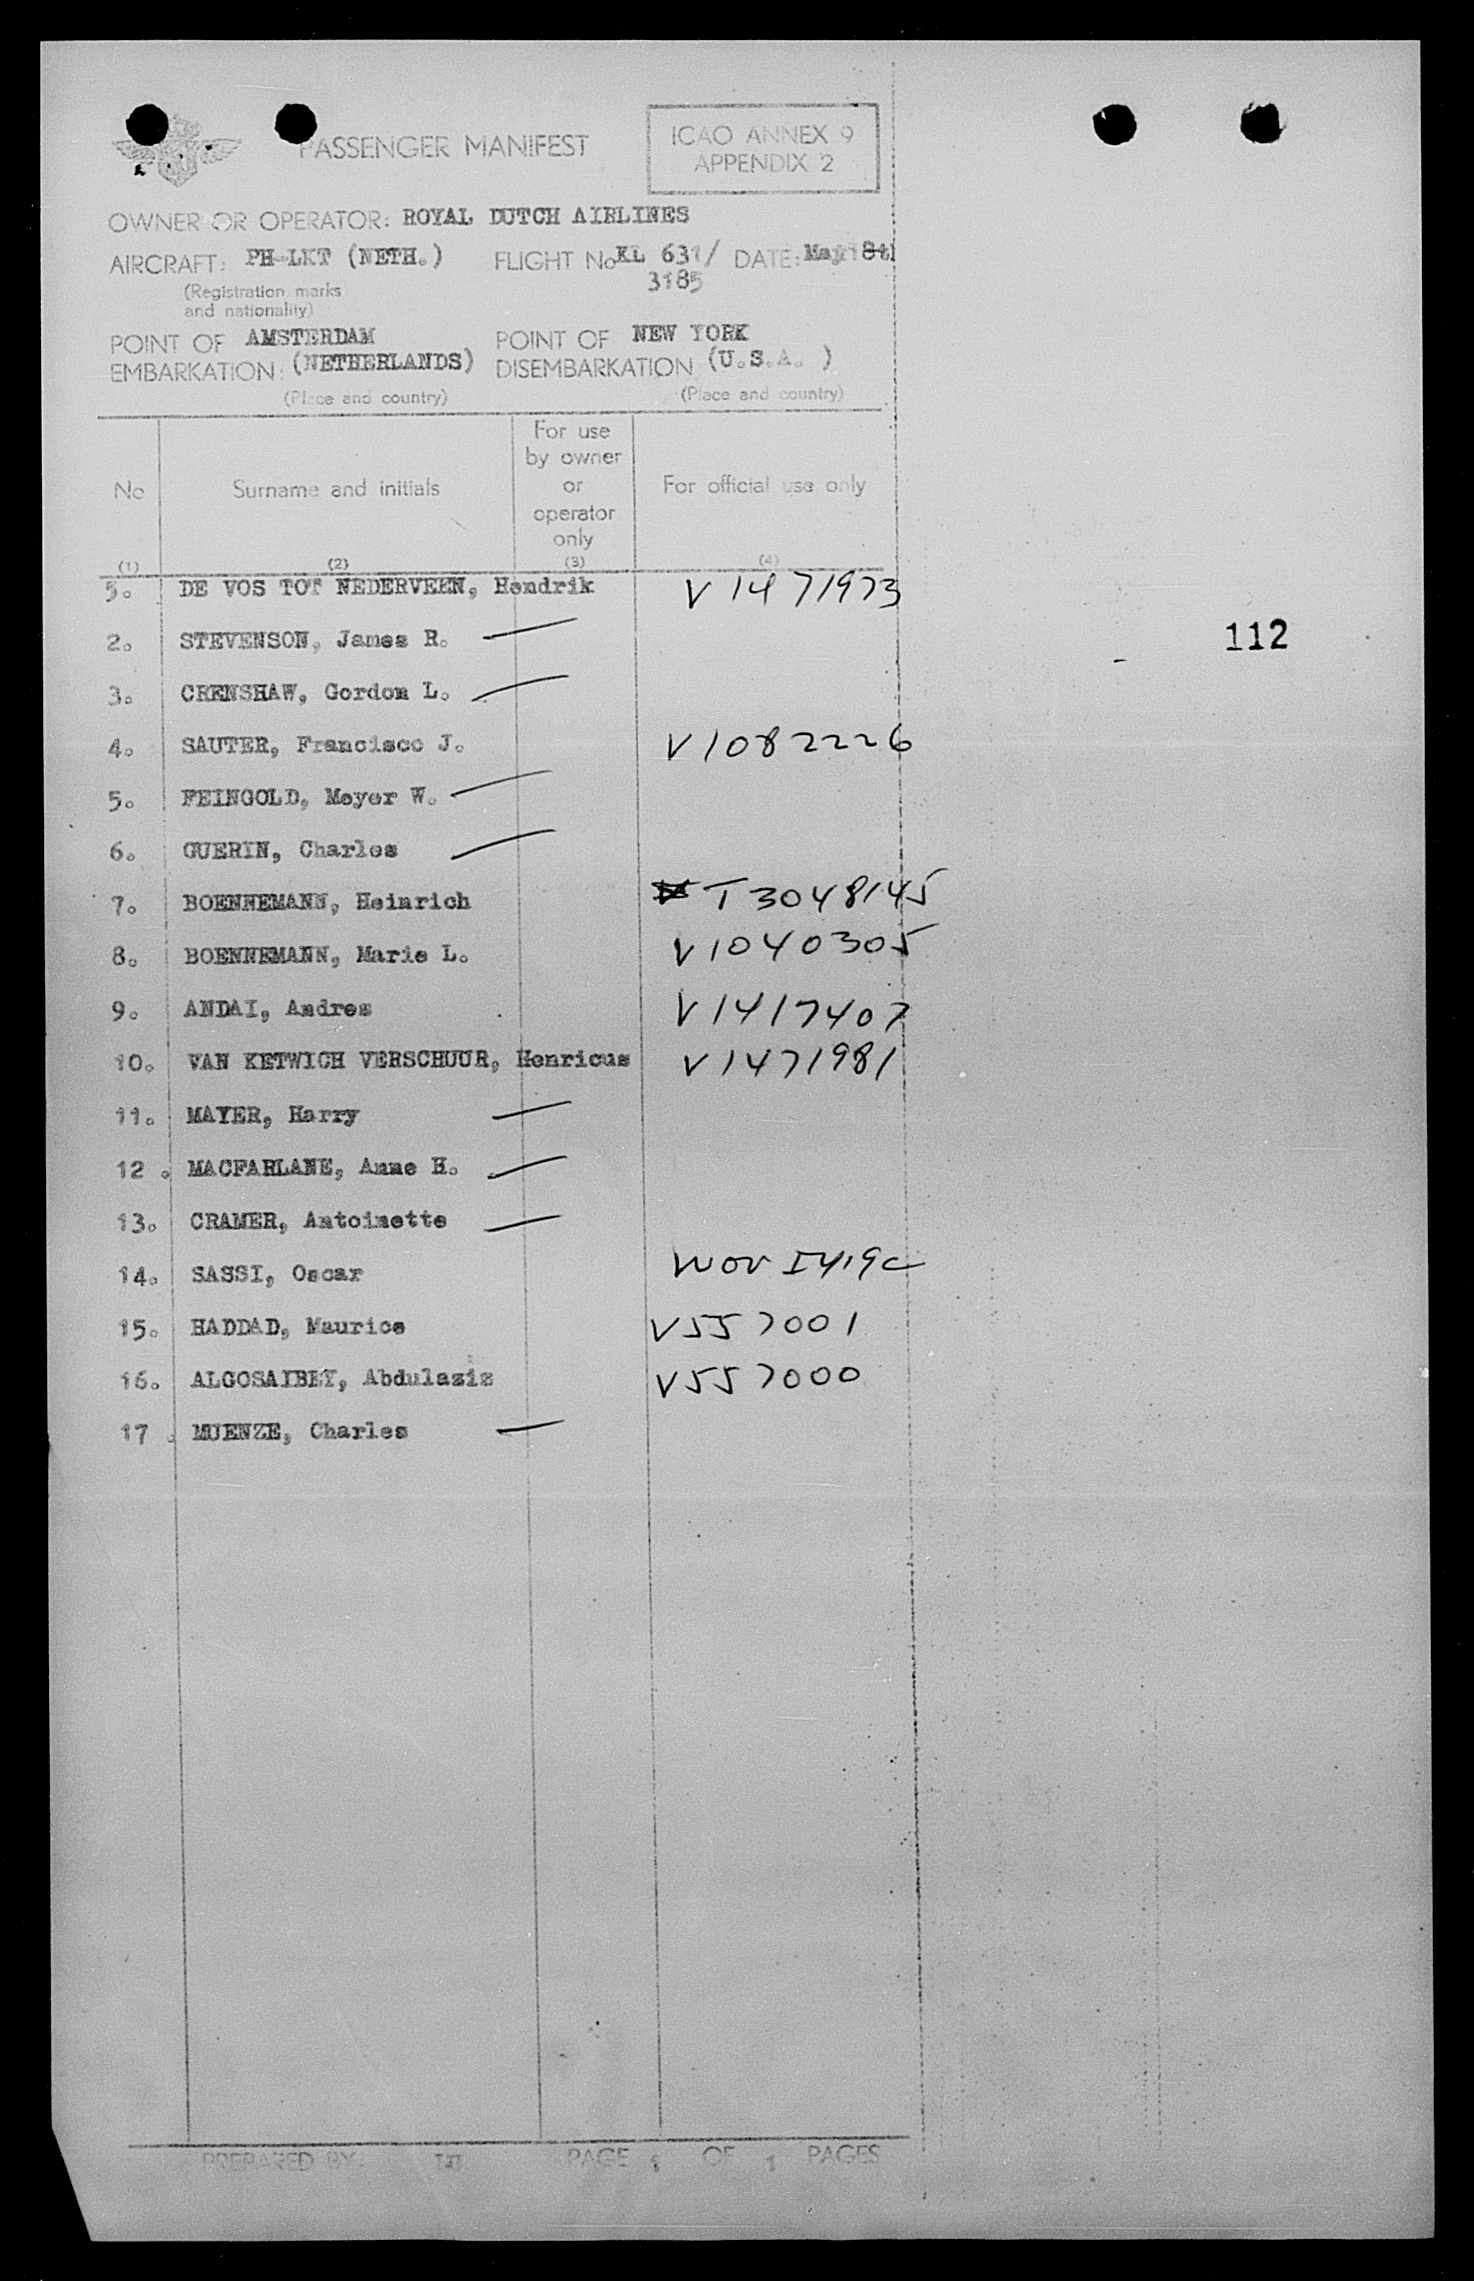 PASSENGER MANIFEST
ICAO ANNEX 9
APPENDIX 2
OWNER OR OPERATOR: ROYAL DUTCH AIRLINES
AIRCRAFT: PH-LKT (NETH.) FLIGHT No KL 631/ DATE: May
3185
(Registration marks
and nationality)
POINT OF AMSTERDAM POINT OF NEW YORK
EMBARKATION: (NETHERLANDS) DISEMBARKATION (U.S.A. )
(Place and country) (Place and country)
No Surname and initials For use by owner or operator only For official use only
(1) (2) (3) (4)
DE VOS TOT NEDERVEEN, Hendrik V 1471973
2. STEVENSON, James R.
112
3. CRENSHAW, Gordon L.
4. SAUTER, Francisco J. V1082226
5. FEINGOLD, Meyer W.
6. GUERIN, Charles
7. BOENNEMANN, Heinrich T3048145
8. BOENNEMANN, Marie L. V1040305
9. ANDAI, Andres V1417407
10. VAN KETWICH VERSCHUUR, Henricus V1471981
11. MAYER, Harry
12 . MACFARLANE, Anne H.
13. CRAMER, Antoinette
14. SASSI, Oscar
15. HADDAD, Maurice V557001
16. ALGOSAIBEY, Abdulaziz V557000
17 . MUENZE, Charles
PREPARED BY: PAGE 1 OF 1 PAGES